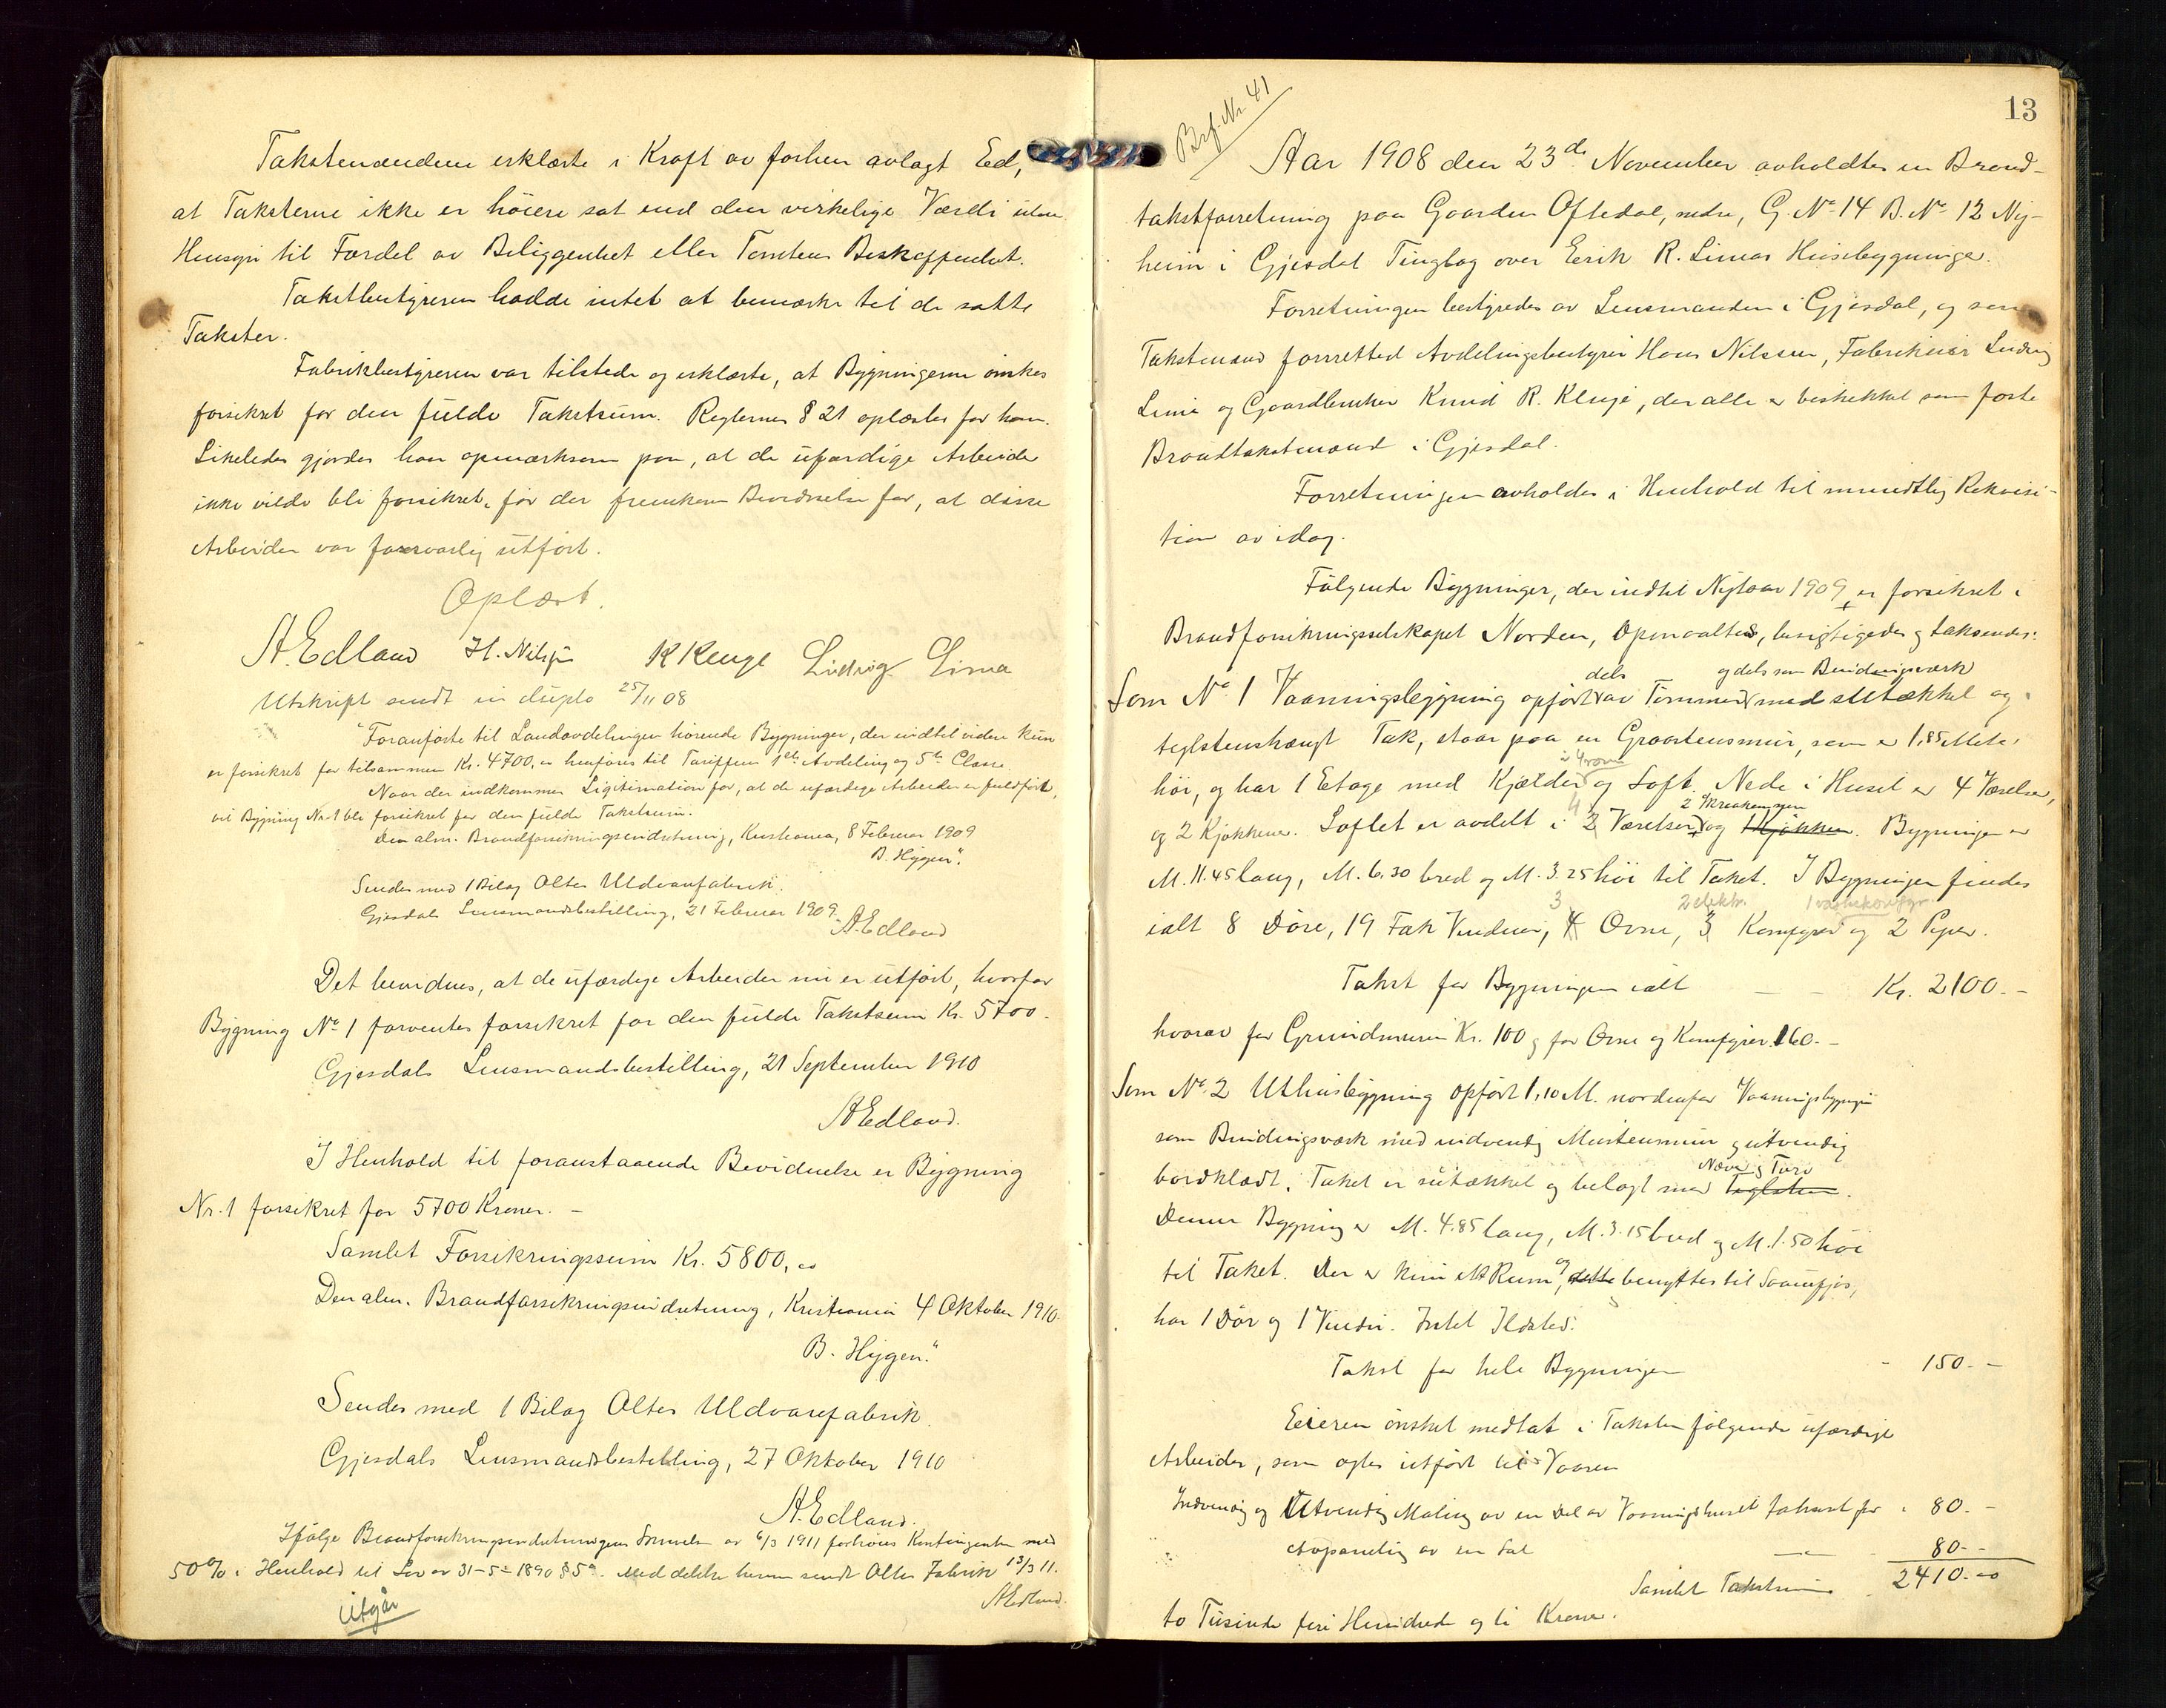 Takstmændene erklærte i Kraft av forhen avlagt Ed,
at Taksterne ikke er höiere sat end den virkelige Værdi uten
Hensyn til Fordel av Beliggenhet eller Tomtens Beskaffenhet.
Takstbestyreren hadde intet at bemærke til de satte
Takster.
Fabrikbestyreren var tilstede og erklærte, at Bygningerne önskes
forsikret for den fulde Takstsum. Reglernes § 21 oplæstes for ham.
Likeledes gjordes han opmærksom paa, at de ufærdige Arbeider
ikke vilde bli forsikret, för der fremkom Bevidnelse for, at disse
Arbeider var forsvarlig utfört.
Oplæst.
A. Edland H. Nilsen K Kluge Ludvig Lima
Utskrift sendt in duplo 25/11 08
"Foranförte til Landavdelingen hörende Bygninger, der indtil videre kun
er forsikret for tilsammen Kr. 4700, henföres til Tariffens 1ste Avdeling og 5te Classe.
Naar der indkommer Legitimation for, at de ufærdige Arbeider er fuldfört,
vil Bygning Nr. 1 bli forsikret for den fulde Takstsum.
Den alm. Brandforsikringsindretning, Kristiania, 8 Februar 1909
B. Hygen".
Sendes med 1 Bilag Oltes Uldvarefabrik.
Gjesdals Lensmandsbestilling, 21 Februar 1909.
A. Edland
Det bevidnes, at de ufærdige Arbeider nu er utfört, hvorfor
Bygning No 1 forventes forsikret for den fulde Takstsum Kr. 5700.
Gjesdals Lensmandsbestilling, 21 September 1910
A Edland.
I Henhold til foranstaaende Bevidnelse er Bygning
Nr. 1 forsikret for 5700 Kroner. -
Samlet Forsikringssum Kr. 5800, 00
Den alm. Brandforsikringsindretning, Kristiania 4 Oktober 1910.
B. Hygen."
Sendes med 1 Bilag Oltes Uldvarefabrik.
Gjesdals Lensmandsbestilling, 27 Oktober 1910
A. Edland.
Ifölge Brandforsikringsindretningens Skrivelse av 6/3 1911 forhöies Kontingenten med
50% i Henhold til Lov av 31-5-1890 § 5. Meddelelse herom sendt Oltes Fabrik 13/3 11.
A Edland.
Utgår
13
Brf. Nr. 41
Aar 1908 den 23de November avholdtes en Brand-
takstforretning paa Gaarden Oftedal, nedre, G. No 14 B. No 12 Ny-
heim i Gjesdal Tinglag over Eerik R. Limas Husebygninger.
Forretningen bestyredes av Lensmanden i Gjesdal, og som
Takstmænd forretted Avdelingsbestyrer Hans Nilssen, Fabrikeier Ludvig
Lima og Gaardbruker Knud R. Kluge, der alle er beskikket som faste
Brandtakstmænd i Gjesdal.
Forretningen avholdes i Henhold til mundtlig Rekvisi-
tion av idag.
Fölgende Bygninger, der indtil Nytaar 1909 er forsikret i
Brandforsikringsselskapet Norden, opmaaltes, besigtigedes og taksertes:
dels og dels som Bindingsværk
Som No 1 Vaaningsbygning opfört av Tömmer med sutækket og
teglstenshængt Tak, staar paa en Graastensmur, som er 1,85 Meter
2 4rom
höi, og har 1 Etage med Kjælder og Loft. Nede i Huset er 4 Værelser,
4 2 Skraakammer
og 2 Kjökkener. Loftet er avdelt i 2 Værelser og 1 Kjökken. Bygningen er
M. 11.45 lang, M. 6.30 bred og M. 3.25 höi til Taket. I Bygningen findes
3 2 elektr. 1 vaskekomfyr.
ialt 8 Döre, 19 Fak Vinduer, 4 Ovne, 3 Komfyrer og 2 Piper.
Takst for Bygningen ialt — — Kr. 2100. -
hvorav for Grundmuren Kr. 100 og for Ovne og Komfyrer 160. -
Som No 2 Uthusbygning opfört 1,10 M. nordenfor Vaaningsbygningen
som Bindingsværk med indvendig Murstensmur og utvendig
Næver og Torv
bordklædt. Taket er sutækket og belagt med Teglsten.
Denne Bygning er M. 4.85 lang, M. 3.15 bred og M. 1.50 höi
til Taket. Der er kun et Rum, og dette benyttes til Sauefjos,
har 1 Dör og 1 Vindu. Intet Ildsted.
Takst for hele Bygningen - 150. -
Eieren önsket medtat i Taksten fölgende ufærdige
Arbeider, som agtes utfört til Vaaren
Indvendig og Utvendig Maling av en Del av Vaaningshuset takseret for - 80. -
Avpaneling av en Sal —— 80. -
Samlet Takstsum 2410. 00
to Tusinde fire Hundrede og ti Kroner.